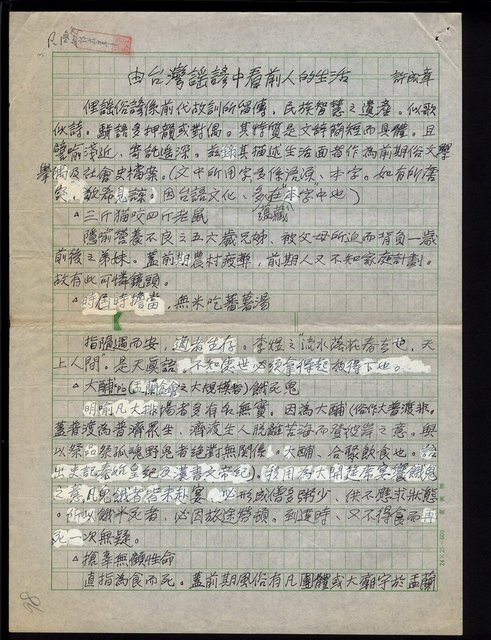 由台灣謠諺中看前人的生活 許成章
俚謠俗諺係前代故訓所留傳,民族智慧之遺產。似歌
似詩。駢語多押韻或對偶。其特質是文辭簡短而具體,且
譬喻淺近,寄託遙深。茲錄其描述生活面者作為前期俗文學
學 及社會史檔案。(文中所用字悉係沿源、本字。如有所
敬希見諒。因台語文化、多在"本字"中也) 蘊藏
△三斤猫咬四斤老鼠
隱喻營養不良之五六歲兄姊、被父母所迫而背負一歲
前後之弟妹。蓋前期農村疲弊,前期人又不知家庭計劃。
故有此可憐鏡頭。
△時到時擔當,無米吃蕃薯湯
指隨遇而安,適者生存。李煜之"流水落花春去也,天
上人間"。是天真語,不知處世必須拿得起放得下也。
△大酺(盂蘭盆會之大規模者)餓死鬼
明喻凡大排場者多有名無實。因為大酺(俗作大普渡非。
蓋普渡為普濟眾生、濟渡生人脫離苦海而登彼岸之意。與
以祭品祭孤魂野鬼者絕對無關係。大酺、合聚飲食也。語
出史記秦始皇紀及漢書文帝紀)。我用為大開筵席宴饗餓鬼
之意。凡鬼餓者若來赴宴,必形成僧多粥少、供不應求狀態
。所以餓半死者,必因放途勞頓。到達時、又不得食而再
死一次無疑。
△搶孤無顧性命
直指為食而死。蓋前期風俗有凡團體或大廟宇於盂蘭
24×25=600